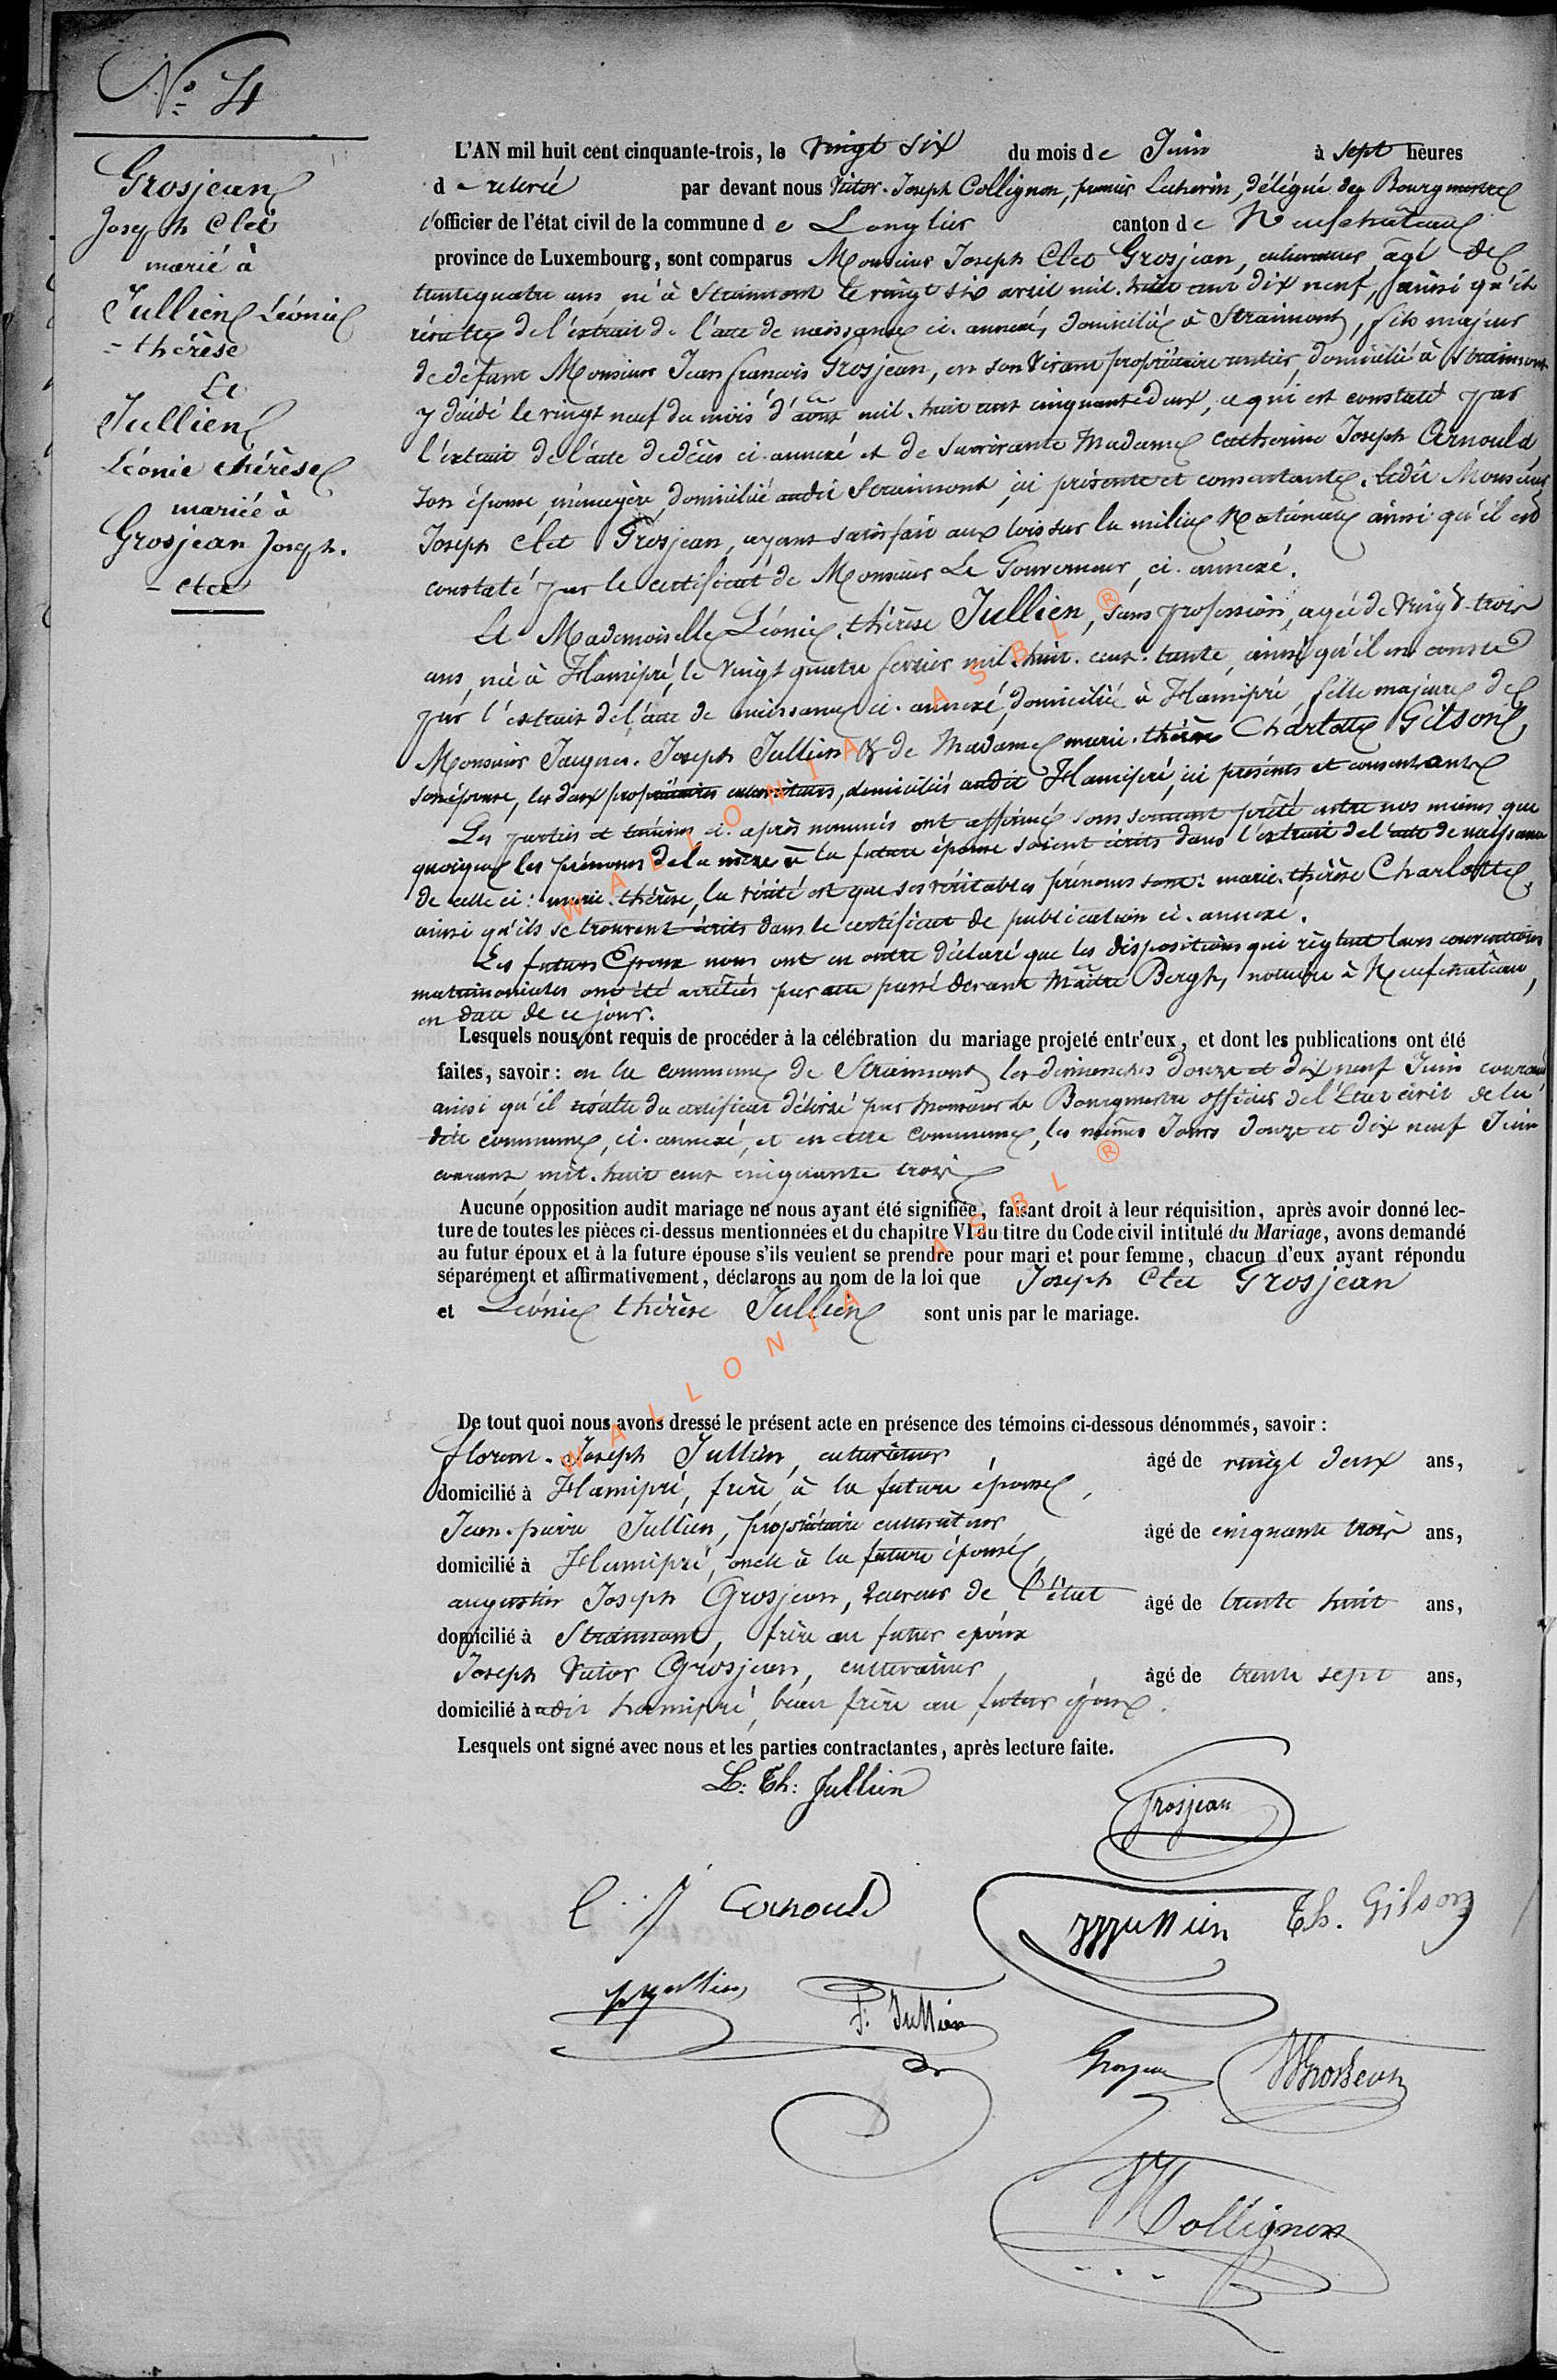 N° 4
Grosjean
Joseph Clet
marié à
Jullien Léonie
- thérèse
Et
Jullien
Léonie thérèse
mariée à
Grosjean Joseph.
- Clet
L'AN mil huit cent cinquante-trois, le vingt six du mois de Juin à sept heures
d relevée par devant nous Victor-Joseph Collignon, premier Echevin, délégué du Bourgmestre
l'officier de l'état civil de la commune de Longlier canton de Neufchâteau
province de Luxembourg, sont comparus Monsieur Joseph Clet Grosjean, cultivateur, âgé de
trentequatre ans né à Straimont le vingt six avril mil-huit cent dix neuf, ainsi qu'il
résulte de l'extrait de l'acte de naissance ci-annexé, domicilié à Straimont, fils majeur
de défunt Monsieur Jean françois Grosjean, en son vivant propriétaire rentier, domicilié à Straimont
y décédé le vingt neuf du mois d'août mil-huit cent cinquante deux, ce qui est constaté par
l'extrait de l'acte de décès ci-annexé et de survivante Madame Catherine Joseph Arnould,
son épouse, ménagère, domiciliée audit Straimont, ici présente et consentante. Ledit Monsieur
Joseph Clet Grosjean, ayant satisfait aux lois sur la milice Nationale ainsi qu'il est
constaté par le certificat de Monsieur Le Gouverneur, ci-annexé.
Et Mademoiselle Léonie thérèse Jullien, sans profession, agée de vingt-trois
ans, née à Hamipré, le vingt quatre fevrier mil-huit-cent-trente, ainsi qu'il en conste
par l'extrait de l'acte de naissance ci-annexé, domiciliée à Hamipré, fille majeure de
Monsieur Jacques-Joseph Jullien & de Madame marie-thérèse Charlotte Gilson,
son épouse, les deux propriétaires cultivateurs, domiciliés audit Hamipré, ici présents et consentants
Les parties et témoins ci-après nommés ont affirmé sous serment prêté entre nos mains que
quoique les prénoms de la mère à la future épouse soient écrits dans l'extrait de l'acte de naissance
de celle ci: marie-thérèse, la vérité est que ses véritables prénoms sont: marie-thérèse Charlotte,
ainsi qu'ils se trouvent écrits dans le certificat de publication ci-annexé.
Les futurs Epoux nous ont en outre déclaré que les dispositions qui règlent leurs conventions
matrimoniales ont été arrêtées par acte passé devant Maître Bergh, notaire à Neufchâteau,
en date de ce jour.
Lesquels nous ont requis de procéder à la célébration du mariage projeté entr'eux, et dont les publications ont été
faites, savoir: en la commune de Straimont les dimanches douze et dix neuf Juin courant
ainsi qu'il résulte du certificat délivré par Monsieur le Bourgmestre officier de l'Etat civil de la
dite commune, ci-annexé, et en cette commune, les mêmes Jours douze et dix neuf Juin
courant mil-huit cent cinquante trois
Aucune opposition audit mariage ne nous ayant été signifiée, faisant droit à leur réquisition, après avoir donné lec-
ture de toutes les pièces ci-dessus mentionnées et du chapitre VI du titre du Code civil intitulé du Mariage, avons demandé
au futur époux et à la future épouse s'ils veulent se prendre pour mari et pour femme, chacun d'eux ayant répondu
séparément et affirmativement, déclarons au nom de la loi que Joseph Clet Grosjean
et Léonie thérèse Jullien sont unis par le mariage.
De tout quoi nous avons dressé le présent acte en présence des témoins ci-dessous dénommés, savoir:
florent-Joseph Jullien, cultivateur âgé de vingt deux ans,
domicilié à Hamipré, frère à la future épouse,
Jean-pierre Jullien, propriétaire cultivateur âgé de cinquante trois ans,
domicilié à Hamipré, oncle à la future épouse,
augustin Joseph Grosjean, receveur de l'état âgé de trente huit ans,
domicilié à Straimont, frère au futur époux
Joseph Victor Grosjean, cultivateur, âgé de trente sept ans,
domicilié à udit hamipré, beau frère au futur époux.
Lesquels ont signé avec nous et les parties contractantes, après lecture faite.
L: Th: Jullien
Grosjean
C. J Arnould
JJJullien Th. Gilson
F. Jullien
Grosjean
Collignon
WALLONIA ASBL ®
WALLONIA ASBL ®